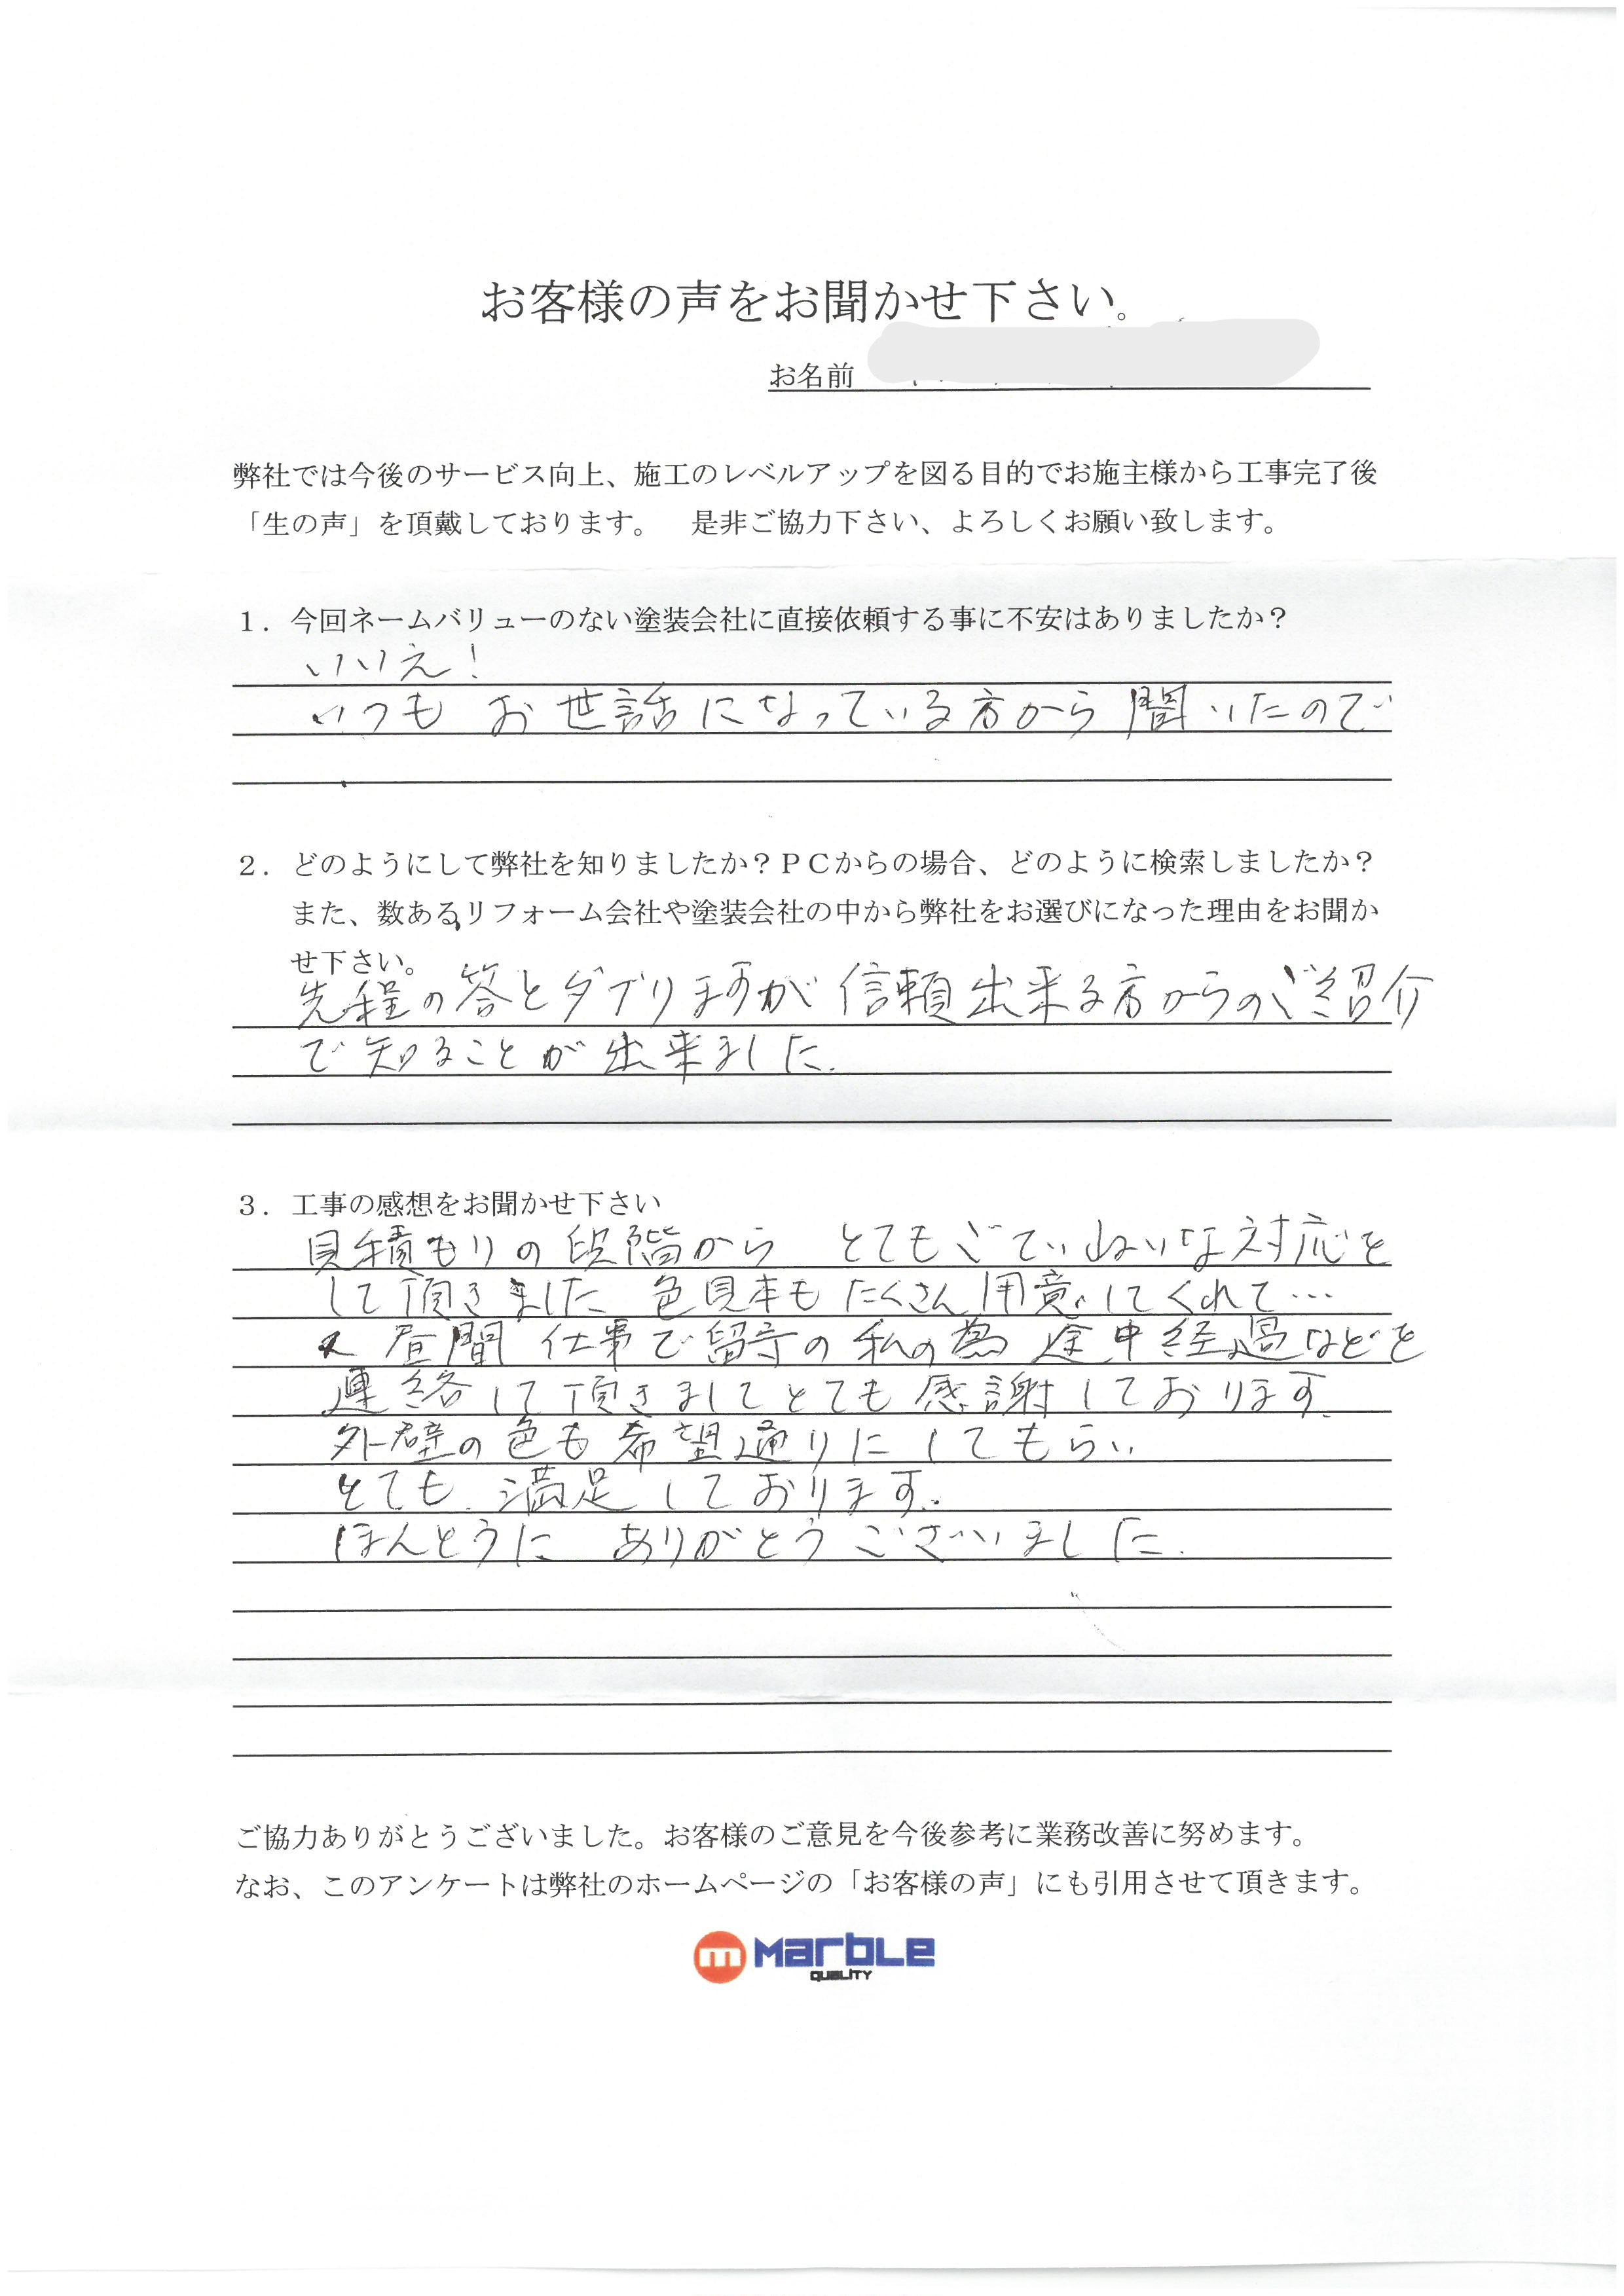 お客様の声をお聞かせ下さい。
お名前
弊社では今後のサービス向上、施工のレベルアップを図る目的でお施主様から工事完了後
「生の声」を頂戴しております。　是非ご協力下さい、よろしくお願い致します。
１．今回ネームバリューのない塗装会社に直接依頼する事に不安はありましたか？
いいえ！
いつも お世話になっている方から 聞いたので
２．どのようにして弊社を知りましたか？ＰＣからの場合、どのように検索しましたか？
また、数あるリフォーム会社や塗装会社の中から弊社をお選びになった理由をお聞か
せ下さい。
先程の答とダブりますが 信頼出来る方からのご紹介
で知ることが出来ました.
３．工事の感想をお聞かせ下さい
見積もりの段階から とてもごていねいな対応を
して頂きました 色見本もたくさん用意してくれて…
昼間 仕事で留守の私の為 途中経過などを
連絡して頂きましてとても感謝しております.
外壁の色も希望通りにしてもらい
とても 満足しております.
ほんとうに ありがとうございました.
ご協力ありがとうございました。お客様のご意見を今後参考に業務改善に努めます。
なお、このアンケートは弊社のホームページの「お客様の声」にも引用させて頂きます。
m Marble
QUALITY